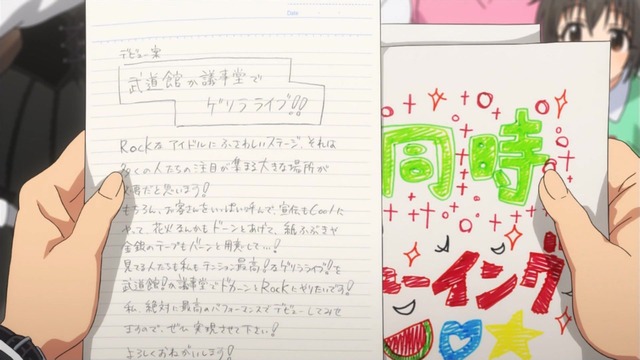 Date
デビュー案
武道館か議事堂で
ゲリラライブ!!
Rockなアイドルにふさわしいステージ、それは
多くの人たちの注目が集まる大きな場所が
必要だと思います!
もちろん、お客さんをいっぱい呼んで、宣伝もCoolに
やって、花火なんかもドーンとあげて、紙ふぶきや
金銀のテープもバーンと用意して…!
見てる人たちも私もテンション最高!なゲリラライブ!を
武道館!か議事堂でドカーンとRockにやりたいです!
私、絶対に最高のパフォーマンスでデビューしてみせ
ますので、ぜひ実現させて下さい!
よろしくおねがいします!
同時
ューイング